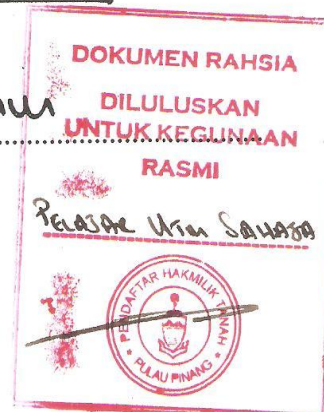 DOKUMEN RAHSIA
DILULUSKAN
UNTUK KEGUNAAN
RASMI
PELAJAR UTM SAHAJA
PENDAFTAR HAKMILIK TANAH
PULAU PINANG